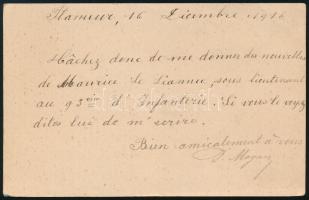 Hameur, 16 Décembre 1916
Tâchez donc de me donner des nouvelles
de Maurice Le Liannec, sous lieutenant
au 93ème d'Infanterie. Si vous le voyez
dites lui de m'écrire.
Bien amicalement à vous